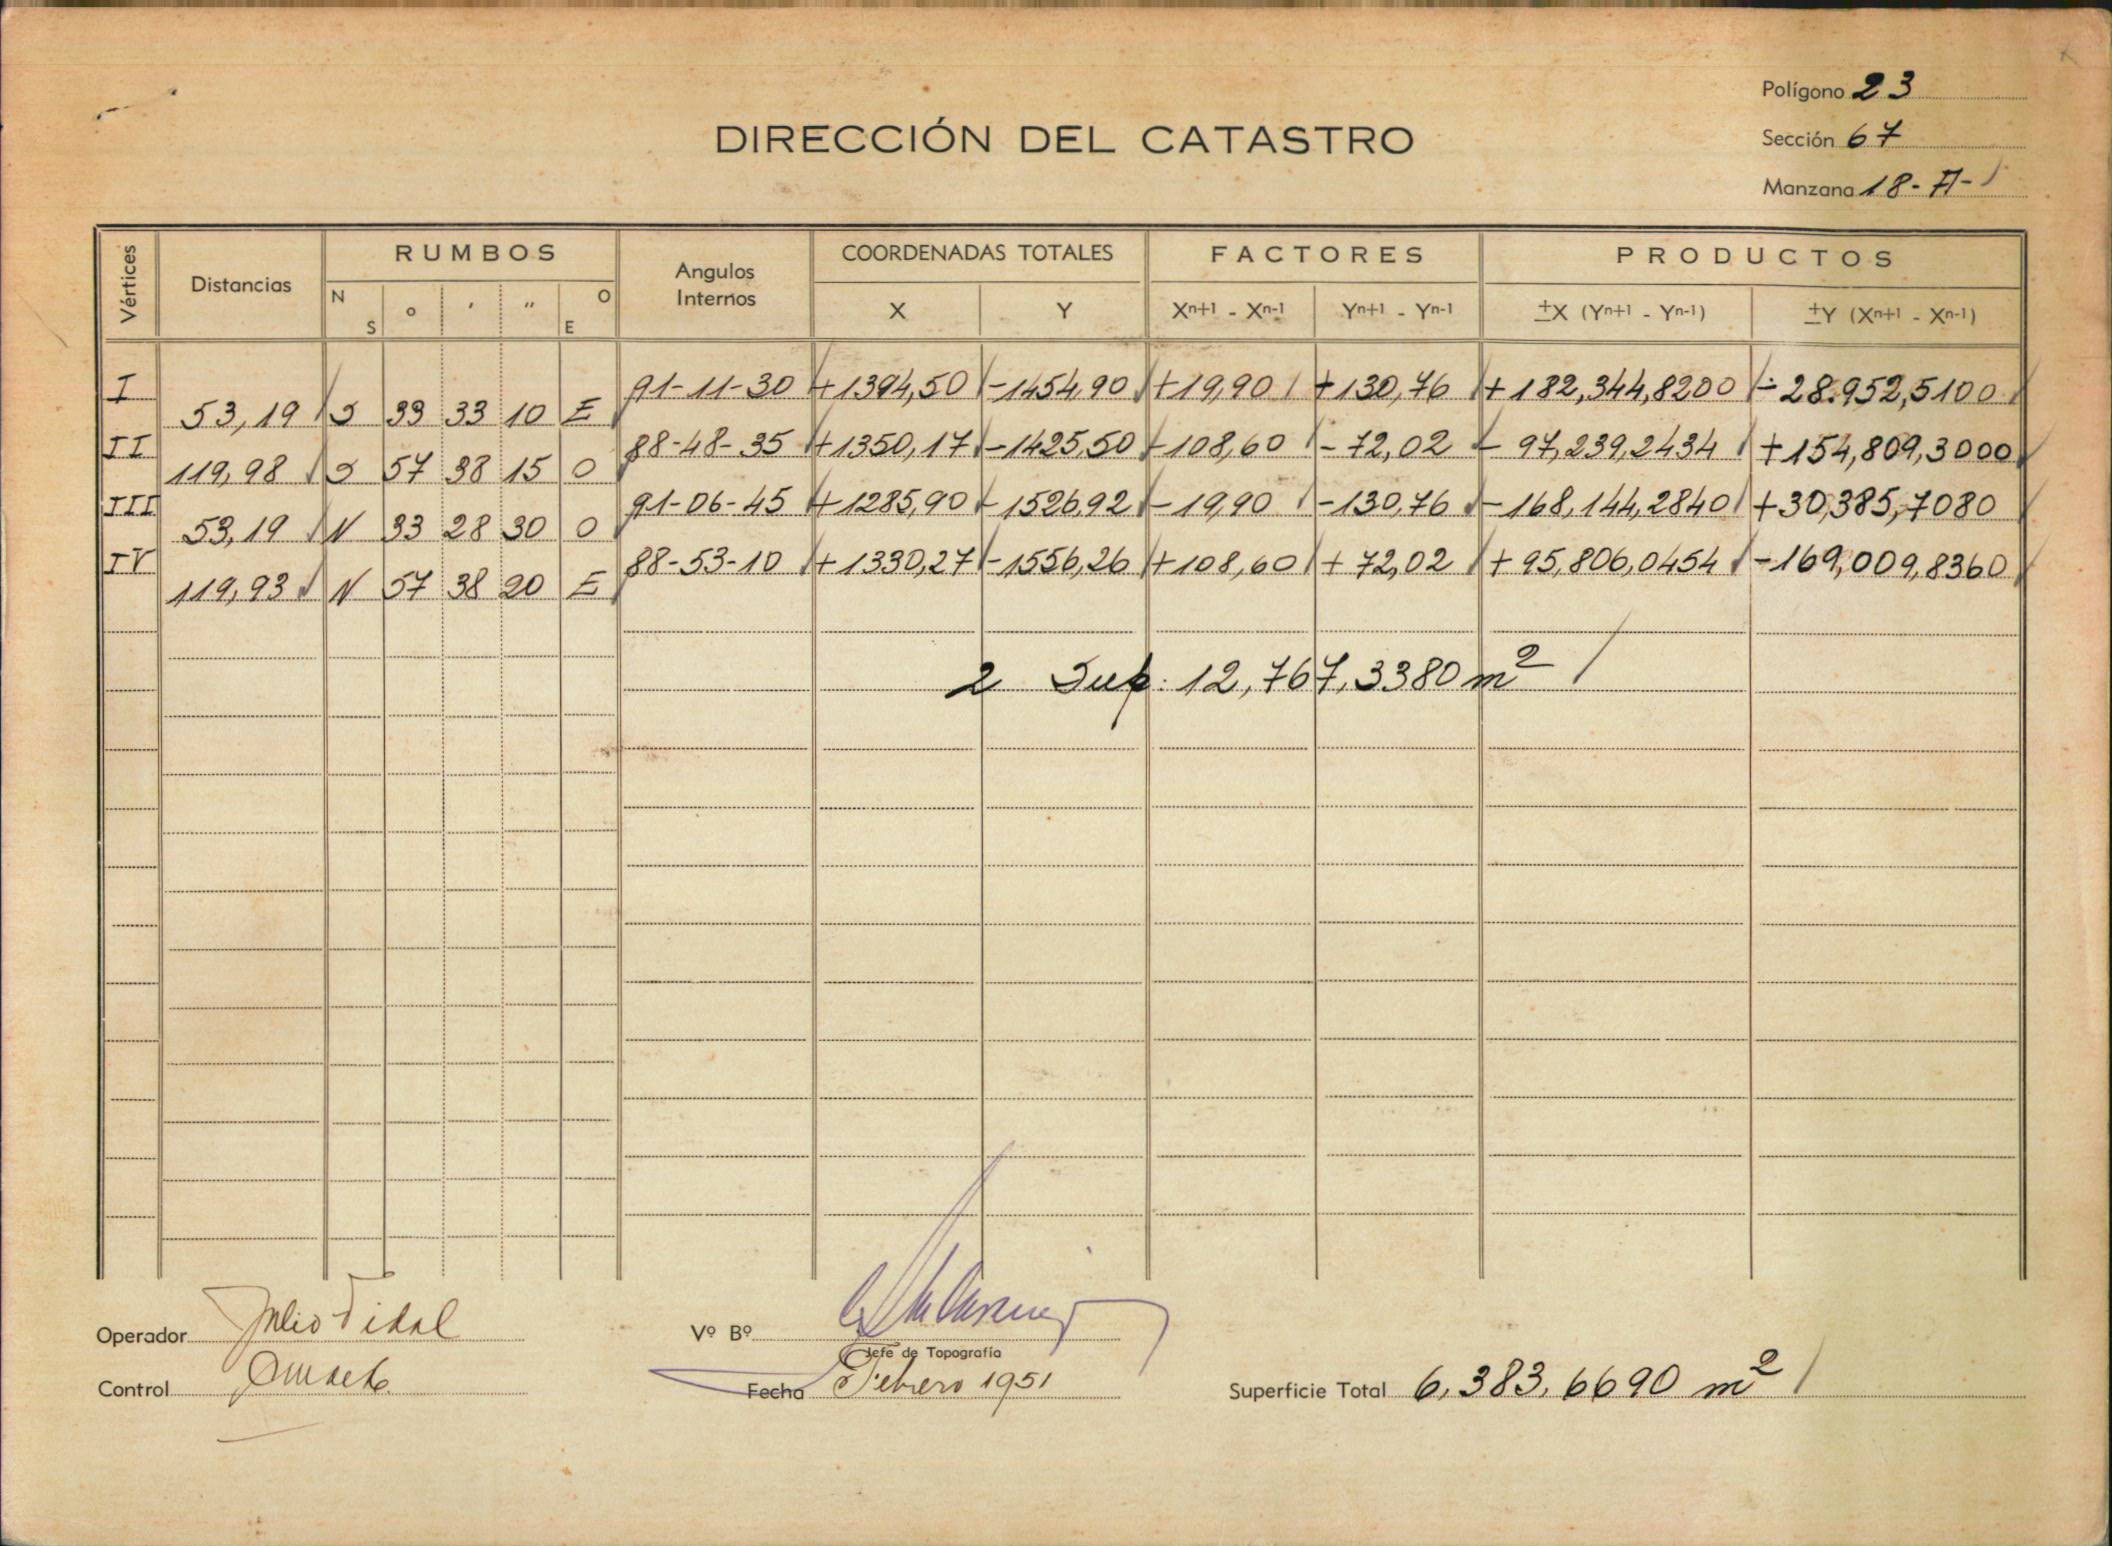 Polígono 23
DIRECCIÓN DEL CATASTRO
Sección 67
Manzana 18-A-1
Vértices Distancias RUMBOS Angulos Internos COORDENADAS TOTALES FACTORES PRODUCTOS
N S ° ' " O E X Y Xn+1 - Xn-1 Yn+1 - Yn-1 ±X (Yn+1 - Yn-1) ±Y (Xn+1 - Xn-1)
I 91-11-30 +1394,50 -1454,90 +19,90 +130,76 +182,344,8200 -28.952,5100
53,19 S 33 33 10 E
II 88-48-35 +1350,17 -1425,50 -108,60 -72,02 -97,239,2434 +154,809,3000
119,98 S 57 38 15 O
III 91-06-45 +1285,90 -1526,92 -19,90 -130,76 -168,144,2840 +30,385,7080
53,19 N 33 28 30 O
IV 88-53-10 +1330,27 -1556,26 +108,60 +72,02 +95,806,0454 -169,009,8360
119,93 N 57 38 20 E
2 Sup. 12,767,3380 m²
Operador Julio Vidal Vº Bº
Jefe de Topografía
Control Fecha Febrero 1951 Superficie Total 6,383,6690 m²